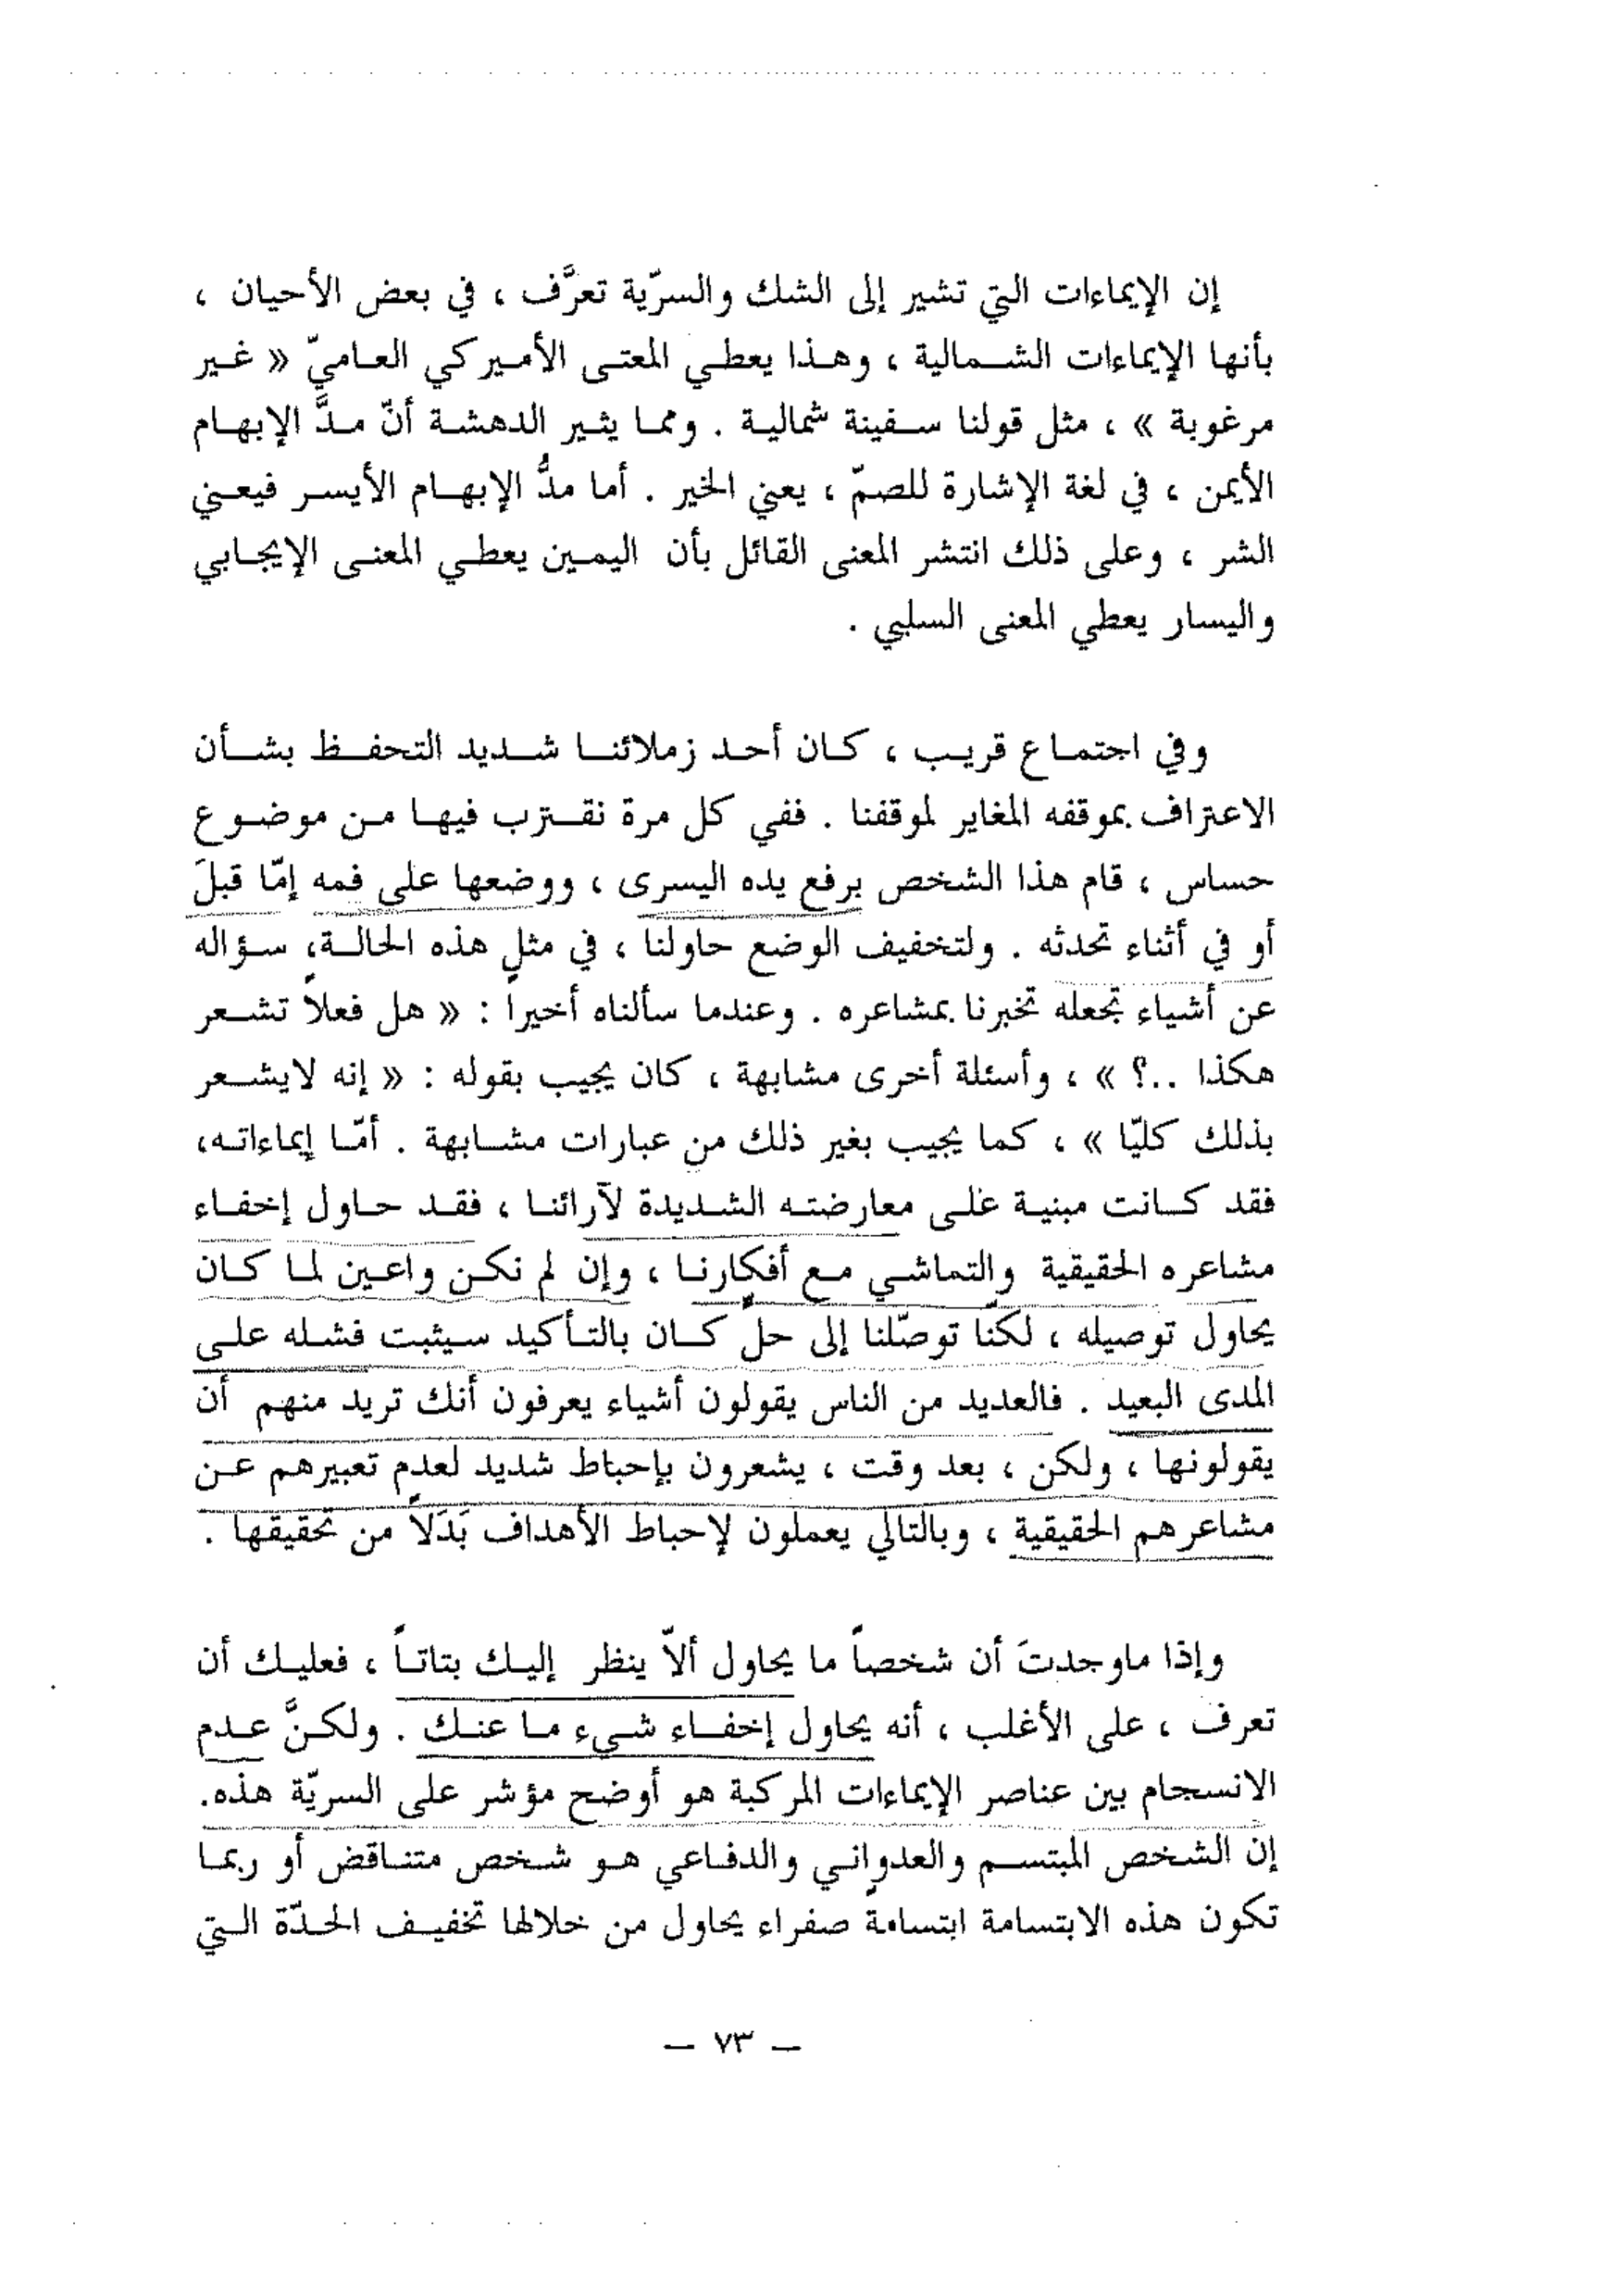 إن الإيماءات التي تشير إلى الشك والسرّية تعرَّف ، في بعض الأحيان ،
بأنها الإيماءات الشمالية ، وهذا يعطي المعتى الأميركي العاميّ « غير
مرغوبة » ، مثل قولنا سفينة شمالية . ومما يثير الدهشة أنّ مدَّ الإبهام
الأيمن ، في لغة الإشارة للصمّ ، يعني الخير . أما مدُّ الإبهام الأيسر فيعني
الشر ، وعلى ذلك انتشر المعنى القائل بأن اليمين يعطي المعنى الإيجابي
واليسار يعطي المعنى السلبي .
وفي اجتماع قريب ، كان أحد زملائنا شديد التحفظ بشأن
الاعتراف بموقفه المغاير لموقفنا . ففي كل مرة نقترب فيها من موضوع
حساس ، قام هذا الشخص برفع يده اليسرى ، ووضعها على فمه إمّا قبلَ
أو في أثناء تحدثه . ولتخفيف الوضع حاولنا ، في مثل هذه الحالة، سؤاله
عن أشياء تجعله تخبرنا بمشاعره . وعندما سألناه أخيراً : « هل فعلاً تشعر
هكذا ..؟ » ، وأسئلة أخرى مشابهة ، كان يجيب بقوله : « إنه لايشعر
بذلك كليّا » ، كما يجيب بغير ذلك من عبارات مشابهة . أمّا إيماءاته،
فقد كانت مبنية على معارضته الشديدة لآرائنا ، فقد حاول إخفاء
مشاعره الحقيقية والتماشي مع أفكارنا ، وإن لم نكن واعين لما كان
يحاول توصيله ، لكنّا توصّلنا إلى حلٍّ كان بالتأكيد سيثبت فشله على
المدى البعيد . فالعديد من الناس يقولون أشياء يعرفون أنك تريد منهم أن
يقولونها ، ولكن ، بعد وقت ، يشعرون بإحباط شديد لعدم تعبيرهم عن
مشاعرهم الحقيقية ، وبالتالي يعملون لإحباط الأهداف بَدَلاً من تحقيقها .
وإذا ماوجدتَ أن شخصاً ما يحاول ألاّ ينظر إليك بتاتاً ، فعليك أن
تعرف ، على الأغلب ، أنه يحاول إخفاء شيء ما عنك . ولكنَّ عدم
الانسجام بين عناصر الإيماءات المركبة هو أوضح مؤشر على السريّة هذه.
إن الشخص المبتسم والعدواني والدفاعي هو شخص متناقض أو ربما
تكون هذه الابتسامة ابتسامةً صفراء يحاول من خلالها تخفيف الحدّة التي
– ٧٣ –